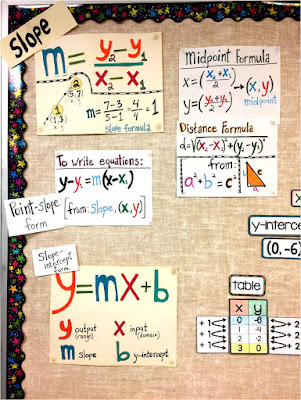 Slope
m = y₂ - y₁
x₂ - x₁
2
(5,7)
1
(1,3)
m = 7-3 = 4 = 1
5-1 4
slope formula
Midpoint Formula
x = (x₂ + x₁)
2
→ (x, y)
midpoint
y = (y₂ + y₁)
2
Distance Formula
d = √(x₂ - x₁)² + (y₂ - y₁)²
from:
a² + b² = c²
c
a
To write equations:
y - y₁ = m(x - x₁)
[from: Slope, (x, y)]
Point-Slope
form
Slope-
intercept
form
y = mx + b
y output
(range)
x input
(domain)
m slope
b y-intercept
y-intercept
(0, -6)
table
x y
0 -6
1 -4
2 -2
3 0
+1
+1
+1
+2
+2
+2